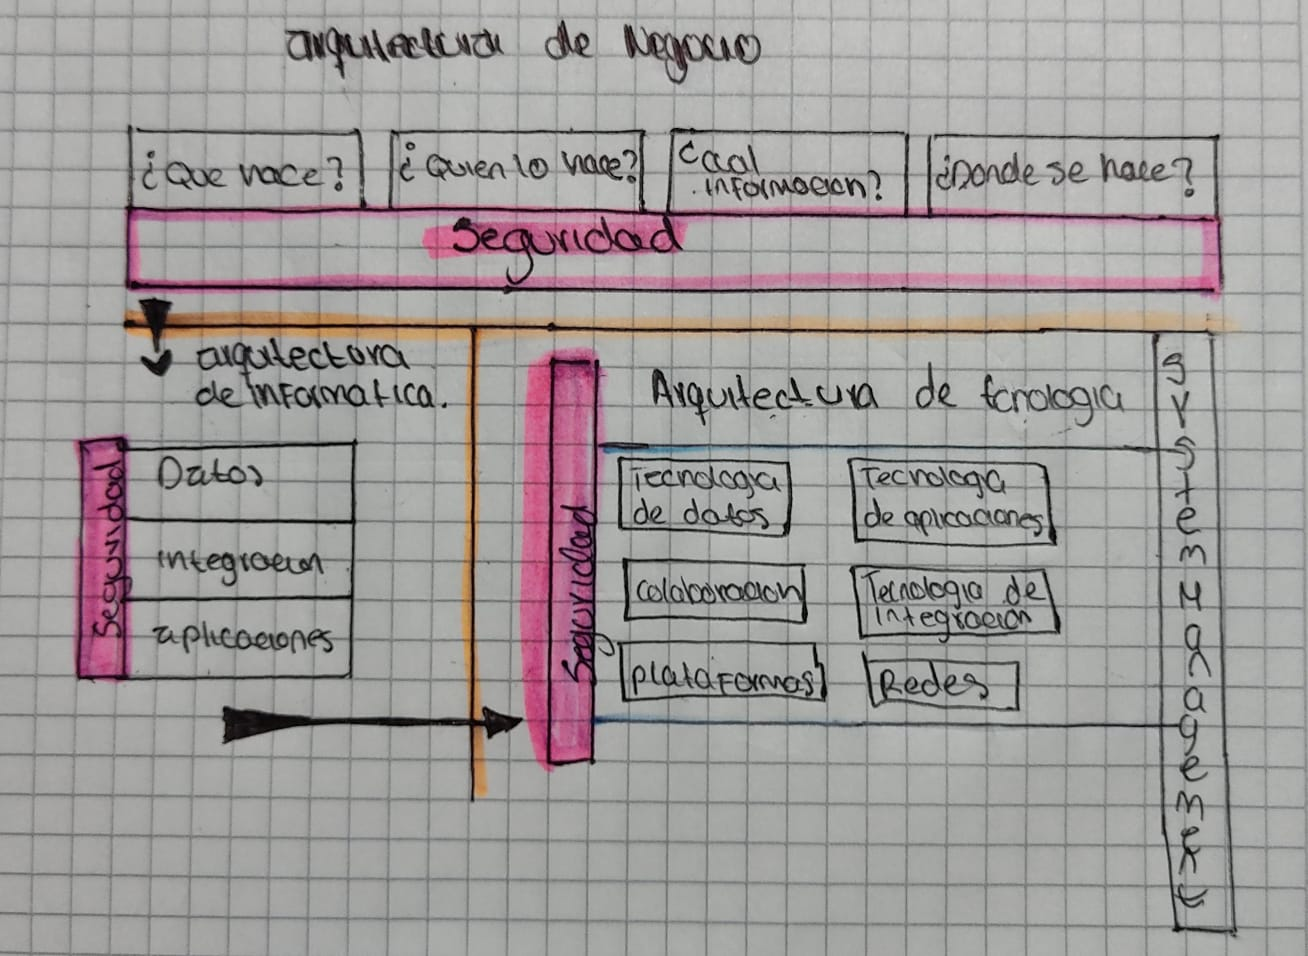 arquitectura de Negocio
¿Que hace?
¿Quien lo hace?
Cual
información?
¿Donde se hace?
Seguridad
arquitectura
de informatica.
Seguridad
Datos
integracion
aplicaciones
Seguridad
Arquitectura de tcnologia
Tecnologia
de datos
Tecnologa
de aplicaciones
Colaboracion
Tecnologia de
integracion
Plataformas
Redes
System Managemext